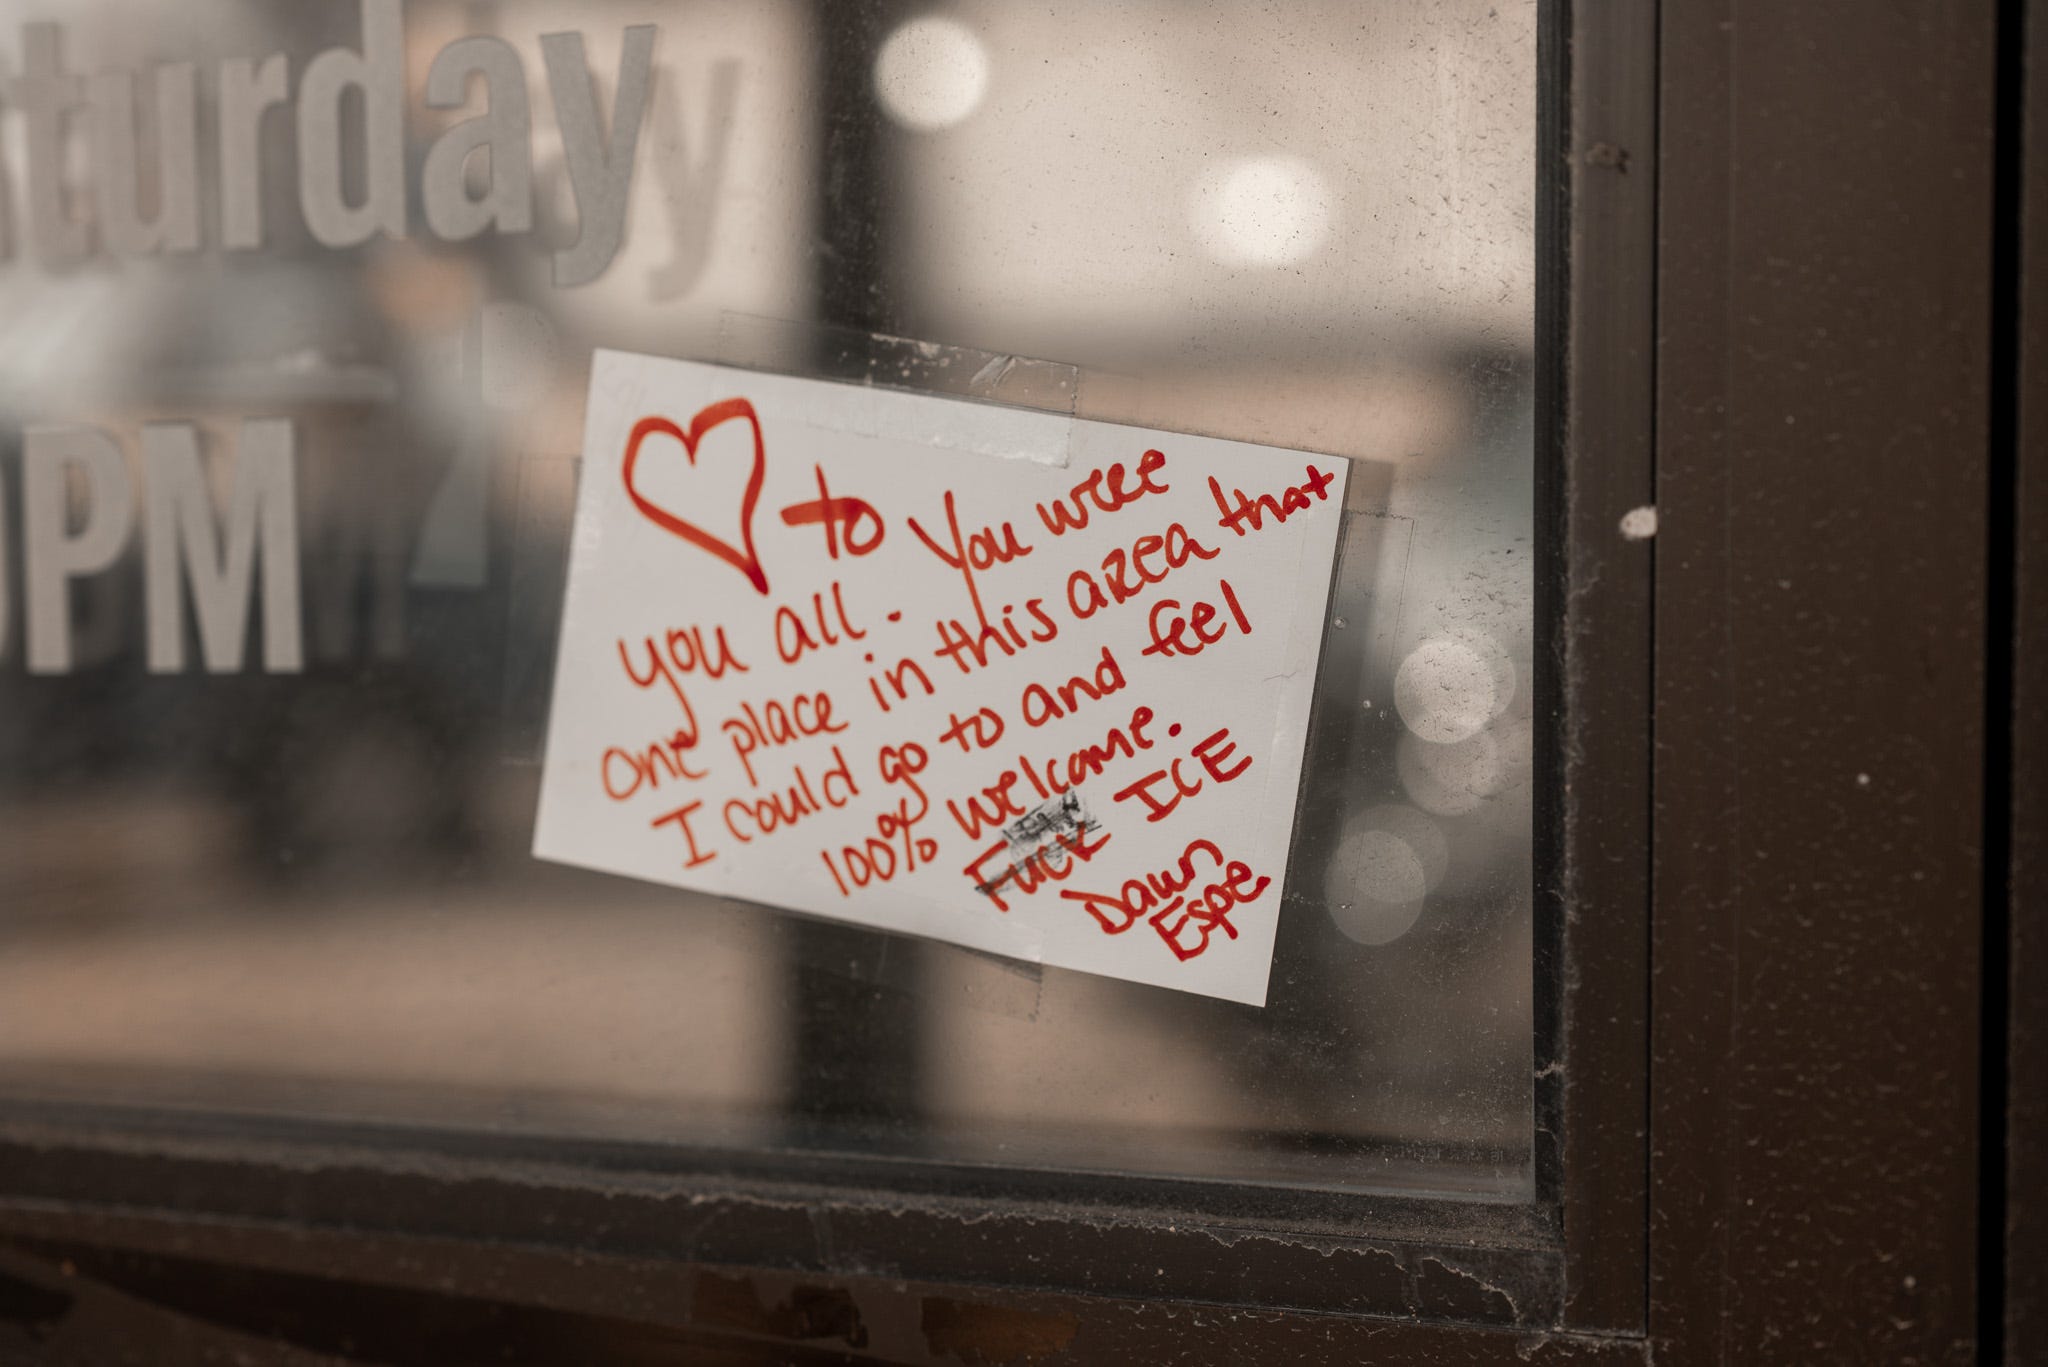 aturday
0PM
♡ to
you all. You were
one place in this area that
I could go to and feel
100% welcome.
Fuck ICE
Dawn
Espe